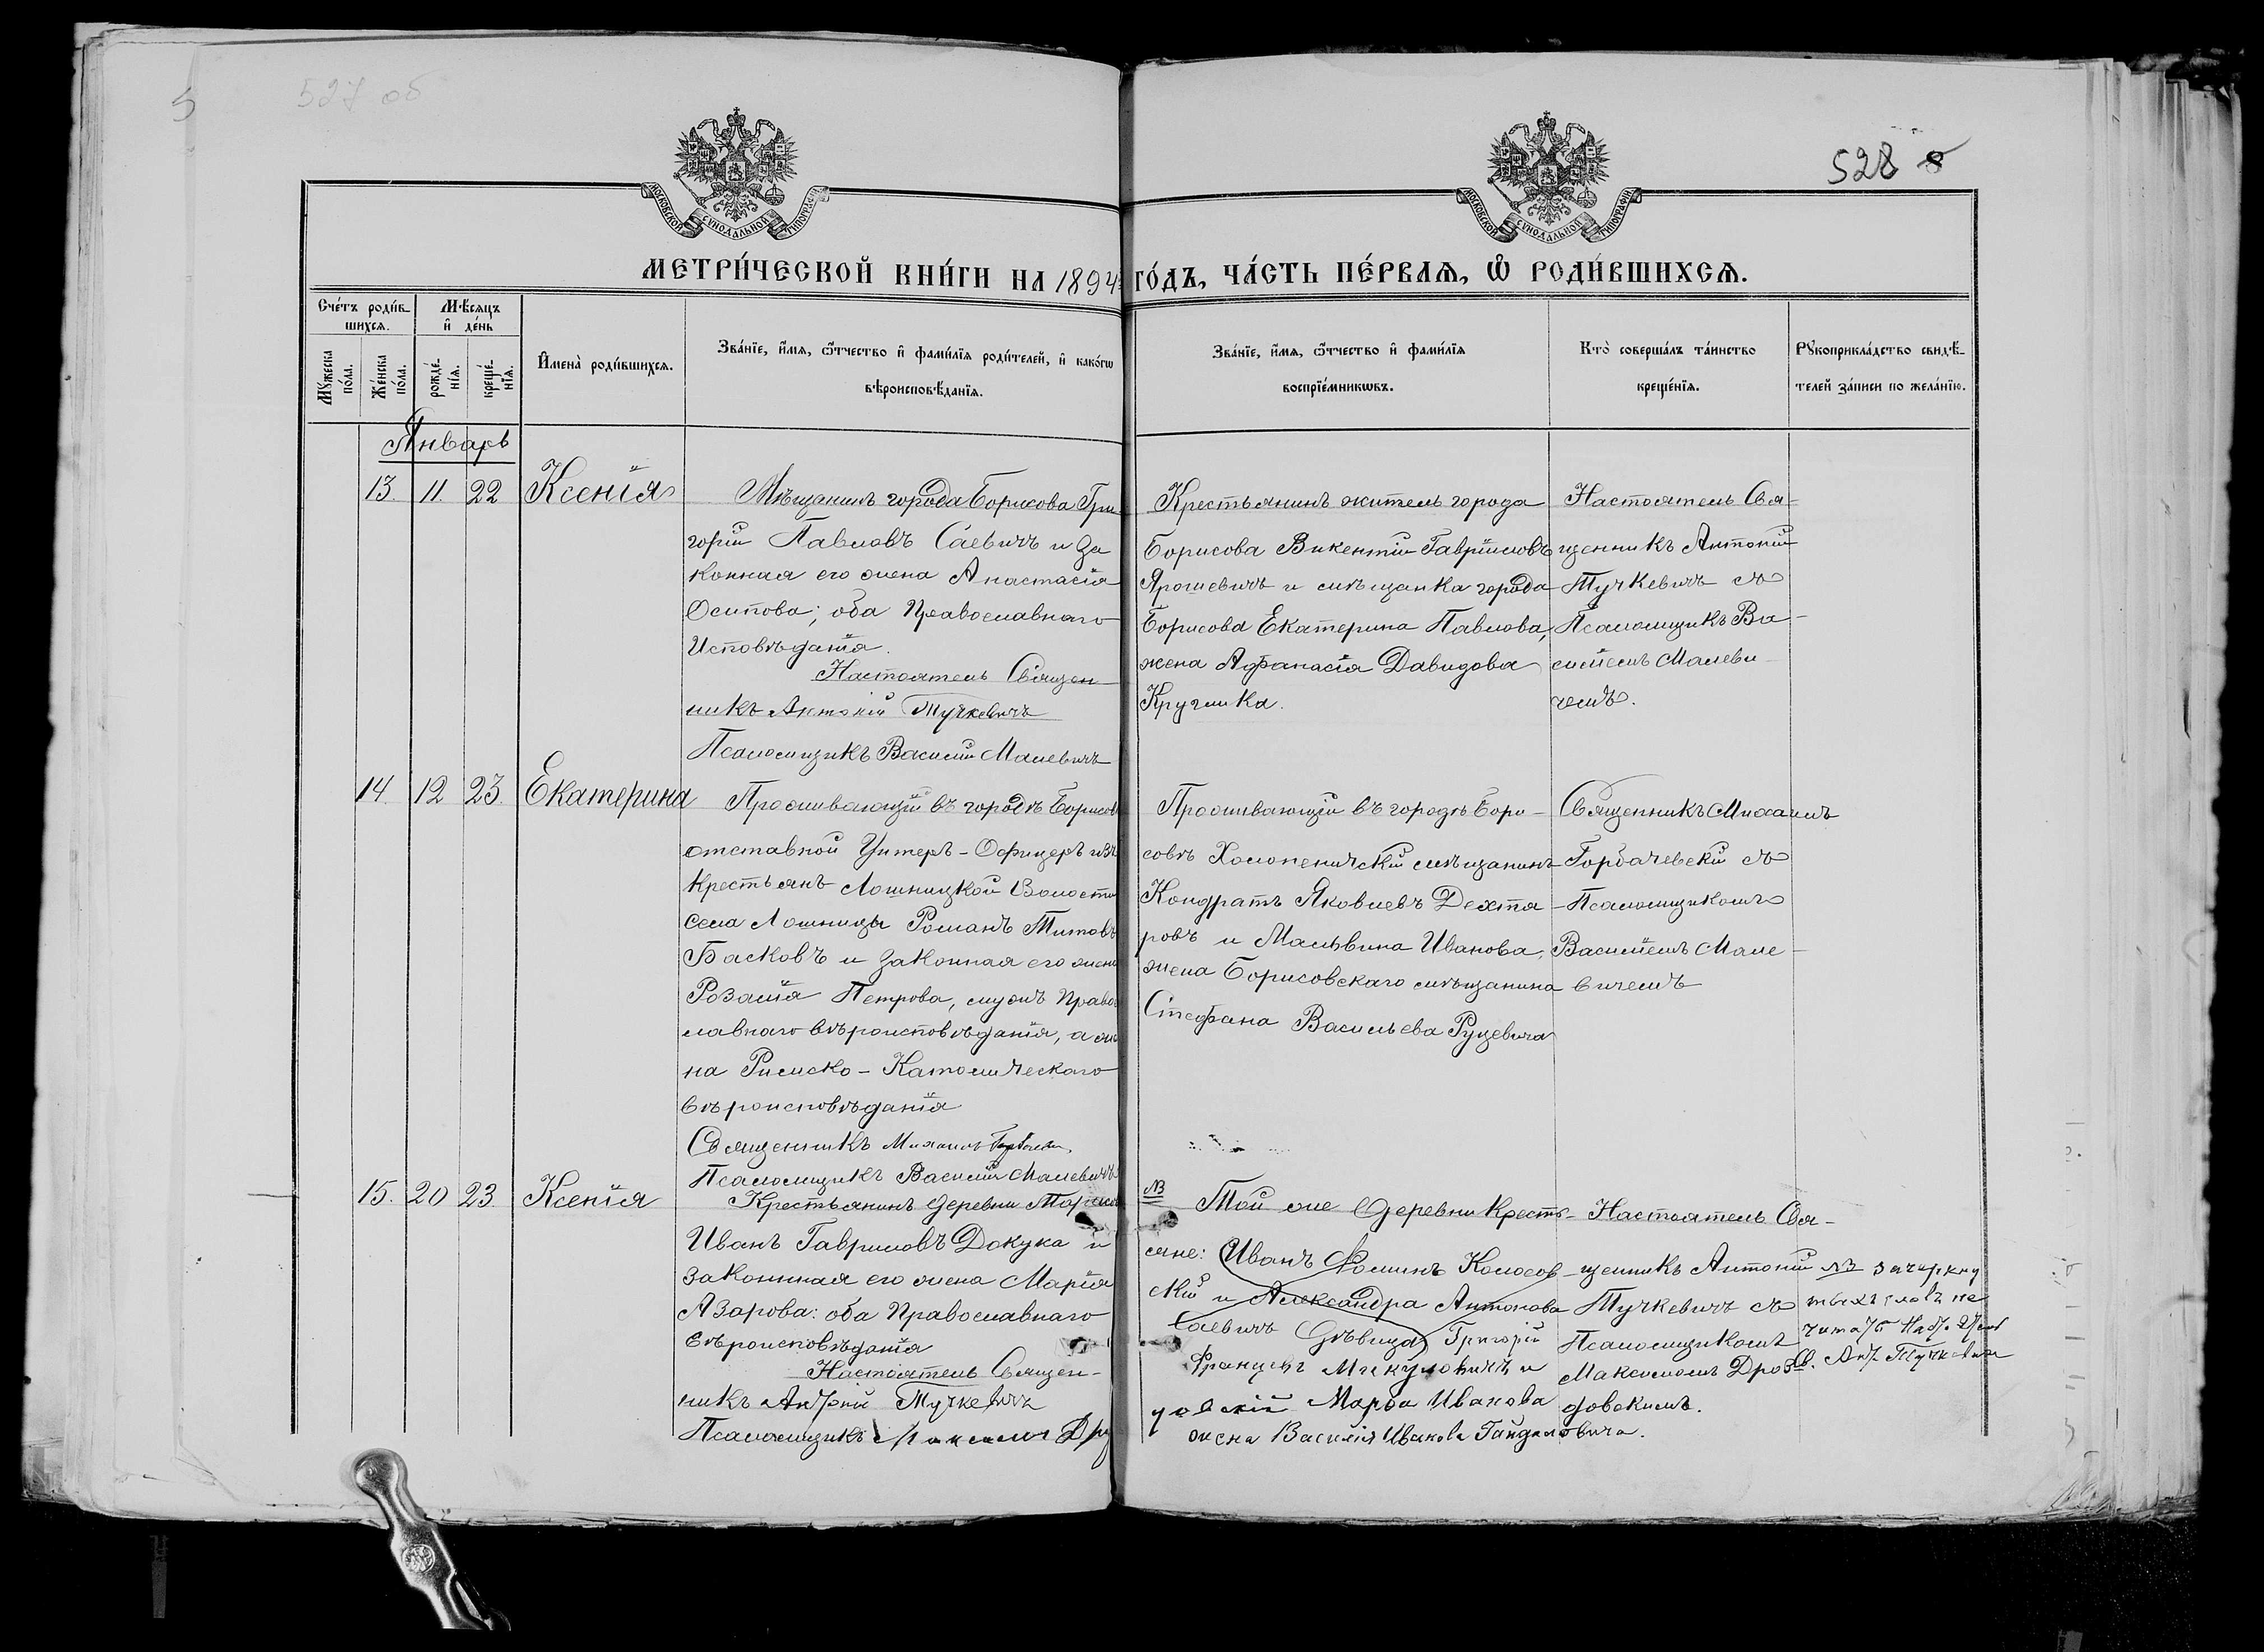 5
527 об
528
МОСКОВСКОЙ СѴНОДАЛЬНОЙ ТИПОГРАФІИ
МОСКОВСКОЙ СѴНОДАЛЬНОЙ ТИПОГРАФІИ
МЕТРИ́ЧЕСКОЙ КНИ́ГИ НА 1894 ГО́ДЪ, ЧА́СТЬ ПЕ́РВАѦ, Ѽ РОДИ́ВШИХСѦ.
Сче́тъ роди́в-
шихсѧ.
Мѣ́сѧцъ
и҆ де́нь
Мꙋ́жеска
по́ла.
Же́нска
по́ла.
рожде́-
нїѧ.
креще́-
нїѧ.
И҆мена̀ роди́вшихсѧ.
Зва́нїе, и҆́мѧ, ѻ҆́тчество и҆ фами́лїѧ роди́телей, и҆ како́гѡ
вѣроисповѣ́данїѧ.
Зва́нїе, и҆́мѧ, ѻ҆́тчество и҆ фами́лїѧ
воспрїе́мникѡвъ.
Кто̀ соверша́лъ та́инство
креще́нїѧ.
Рꙋкоприкла́дство свидѣ́-
телей за́писи по жела́нїю.
Январь
13. 11. 22 Ксенія
Мѣщанинъ города Борисова Гри
горій Павловъ Саевичъ и за
конная его жена Анастасія
Осипова; оба Православнаго
Исповѣданія.
Настоятель Священ
никъ Антоній Тучкевичъ
Псаломщикъ Василій Малевичъ
Крестьянинъ житель города
Борисова Викентій Гавріиловъ
Ярошевичъ и мѣщанка города
Борисова Екатерина Павлова,
жена Афанасія Давидова
Круглика.
Настоятель Свя-
щенникъ Антоній
Тучкевичъ съ
Псаломщикъ Ва-
силіемъ Малеви
чемъ.
14. 12 23. Екатерина
Проживающій въ городѣ Борисов
отставной Унтеръ-Офицеръ изъ
крестьянъ Лошницкой Волости
села Лошницы Романъ Титовъ
Басковъ и законная его жена
Розалія Петрова, мужъ Право
лавнаго вѣроисповѣданія, а же
на Римско-Католическаго
вѣроисповѣданія
Священникъ Михаилъ
Псаломщикъ Василій Малевичъ
Проживающій въ городѣ Бори-
совѣ Холопеничскій мѣщанинъ
Кондратъ Яковлевъ Дехтя-
ровъ и Мальвина Иванова,
жена Борисовскаго мѣщанина
Стефана Васильева Руцевича
Священникъ Михаилъ
Горбачевскій съ
Псаломщикомъ
Василіемъ Мале-
вичемъ
15. 20 23. Ксенія
Крестьянинъ деревни
Иванъ Гавриловъ Докука и
законная его жена Марія
Азарова: оба Православнаго
вѣроисповѣданія
Настоятель Священ-
никъ Антоній Тучкевичъ
Псаломщикъ Максимъ
NB
Той же деревни Кресть-
яне: Иванъ Ѳоминъ Колосов-
скій и Александра Антонова
Саевичъ дѣвица Григорій
Францевъ и
Марѳа Иванова
жена Василія Иванова Гайдаловича.
Настоятель Свя-
щенникъ Антоній
Тучкевичъ съ
Псаломщикомъ
Максимомъ Дроз-
довскимъ.
NB зачеркну
тыхъ словъ не
читать
Св. Ант. Тучкевичъ